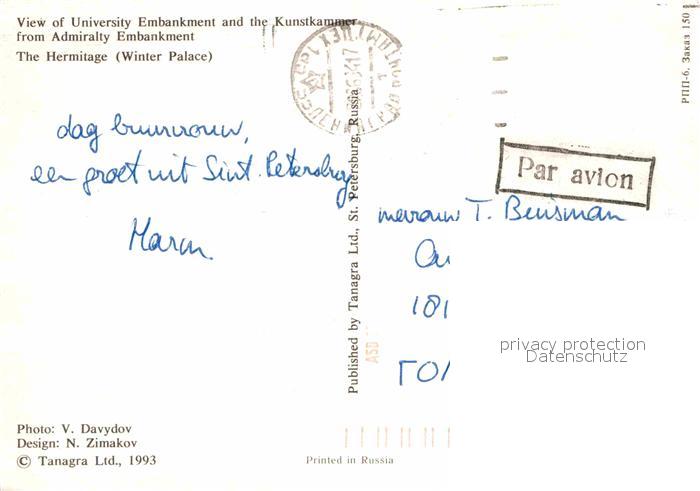 View of University Embankment and the Kunstkammer
from Admiralty Embankment
The Hermitage (Winter Palace)
РПП-6. Заказ 150
dag buurvrouw,
een groet uit Sint. Petersburg
Par avion
mevrouw T. Beusman
181
privacy protection
Datenschutz
Published by Tanagra Ltd., St. Petersburg, Russia
ASD
Photo: V. Davydov
Design: N. Zimakov
© Tanagra Ltd., 1993
Printed in Russia